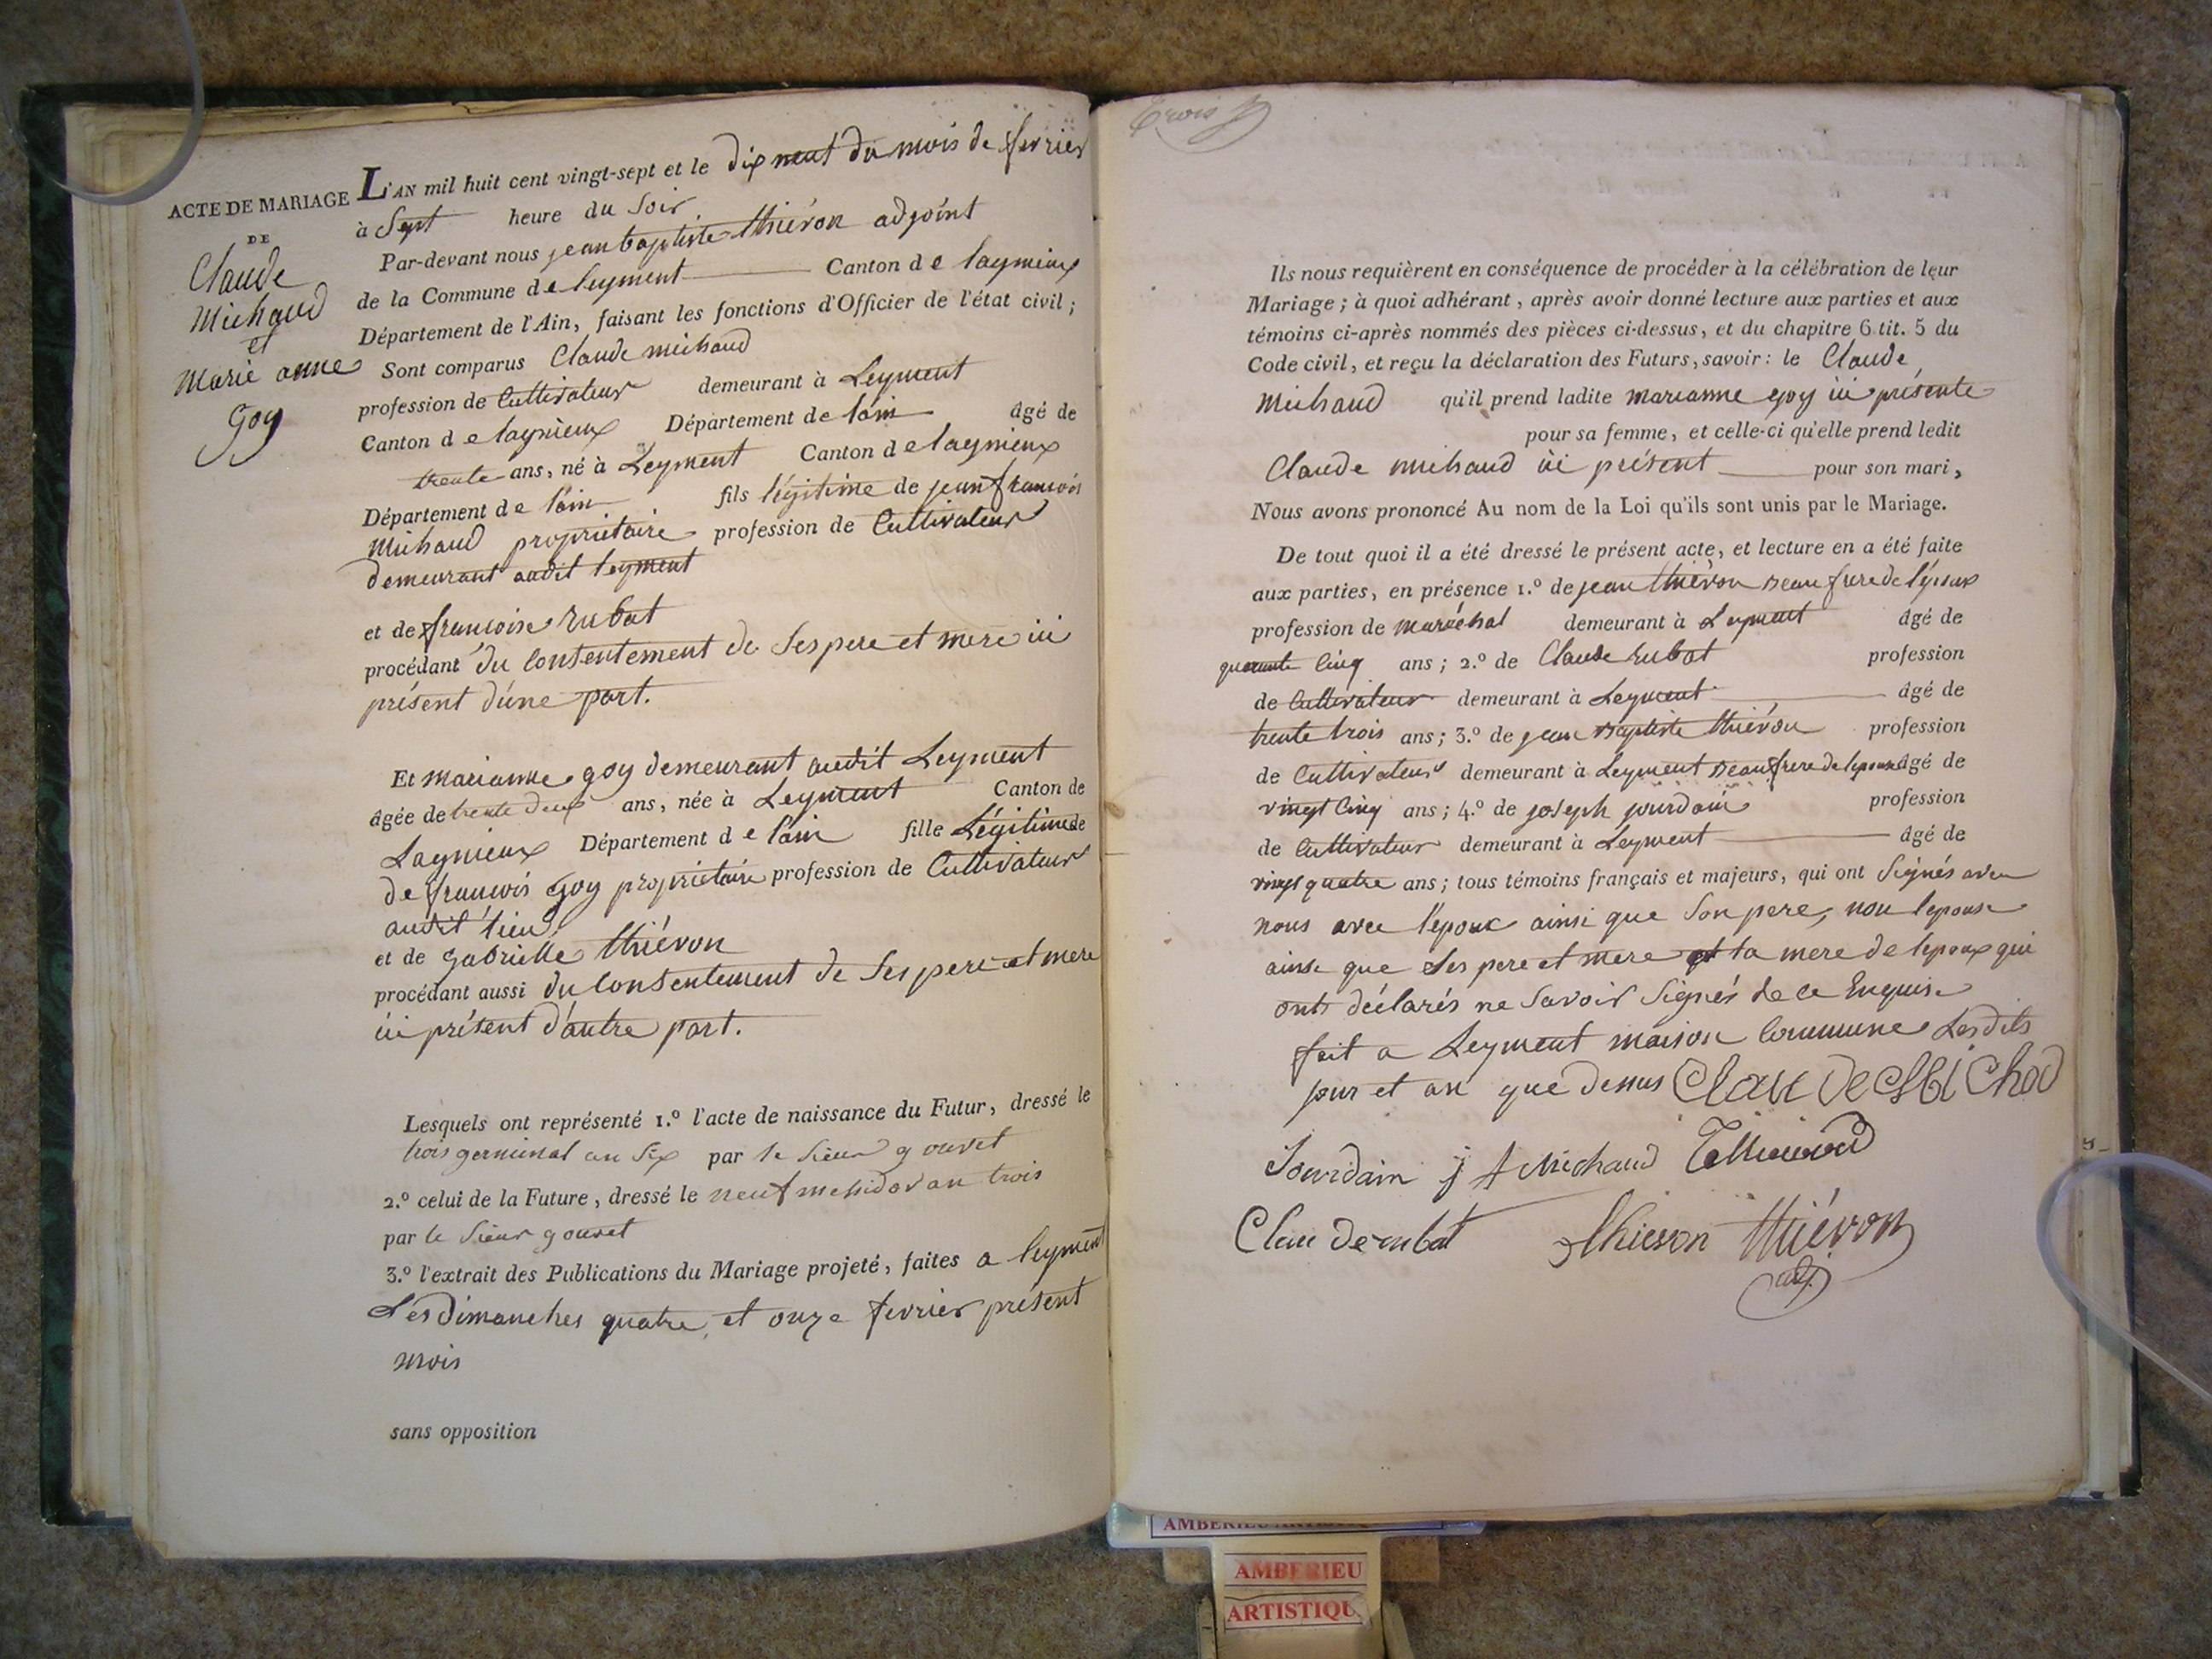 ACTE DE MARIAGE
DE
Claude
Michaud
et
Marie anne
Goy
L'AN mil huit cent vingt-sept et le dix neuf du mois de fevrier
à Sept heure du Soir
Par-devant nous jean baptiste thiévon adjoint
de la Commune de leyment Canton de lagnieux
Département de l'Ain, faisant les fonctions d'Officier de l'état civil ;
Sont comparus Claude michaud
profession de Cultivateur demeurant à Leyment
Canton de lagnieux Département de lain âgé de
trente ans, né à Leyment Canton de lagnieux
Département de lain fils légitime de jean francois
Michaud propriétaire profession de Cultivateur
demeurant audit leyment
et de francoise rubat
procédant du Consentement de Ses pere et mere ici
présent d'une part.
Et marianne goy demeurant audit Leyment
âgée de trente deux ans, née à Leyment Canton de
Lagnieux Département de lain fille Légitime de
de francois Goy propriétaire profession de Cultivateur
audit lieu
et de gabrielle thiévon
procédant aussi du Consentement de Ses pere et mere
ici présent d'autre part.
Lesquels ont représenté 1.º l'acte de naissance du Futur, dressé le
trois germinal an Six par le Sieur gouvet
2.º celui de la Future, dressé le neuf messidor an trois
par le Sieur gouvet
3.º l'extrait des Publications du Mariage projeté, faites a leyment
Les dimanches quatre et onze fevrier présent
mois
sans opposition
trois
Ils nous requièrent en conséquence de procéder à la célébration de leur
Mariage ; à quoi adhérant, après avoir donné lecture aux parties et aux
témoins ci-après nommés des pièces ci-dessus, et du chapitre 6 tit. 5 du
Code civil, et reçu la déclaration des Futurs, savoir : le Claude
Michaud qu'il prend ladite marianne goy ici présente
pour sa femme, et celle-ci qu'elle prend ledit
Claude michaud ici présent pour son mari,
Nous avons prononcé Au nom de la Loi qu'ils sont unis par le Mariage.
De tout quoi il a été dressé le présent acte, et lecture en a été faite
aux parties, en présence 1.º de jean thiévon Beau frere de l'époux
profession de maréchal demeurant à Leyment âgé de
quarante Cinq ans ; 2.º de Claude rubat profession
de Cultivateur demeurant à Leyment âgé de
trente trois ans ; 3.º de jean Baptiste thiévon profession
de Cultivateur demeurant à Leyment Beau frere de lepouse âgé de
vingt Cinq ans ; 4.º de joseph jourdain profession
de Cultivateur demeurant à Leyment âgé de
vingt quatre ans ; tous témoins français et majeurs, qui ont Signés avec
nous avec l'époux ainsi que Son pere, non lepouse
ainsi que Ses pere et mere et la mere de lepoux qui
onts déclarés ne Savoir Signés de ce Enquis
fait a Leyment maison Commune Lesdits
jour et an que dessus Claude Michod
Jourdain j f Michaud
Claude rubat thievon thiévon
adj.
AMBERIEU
ARTISTIQU